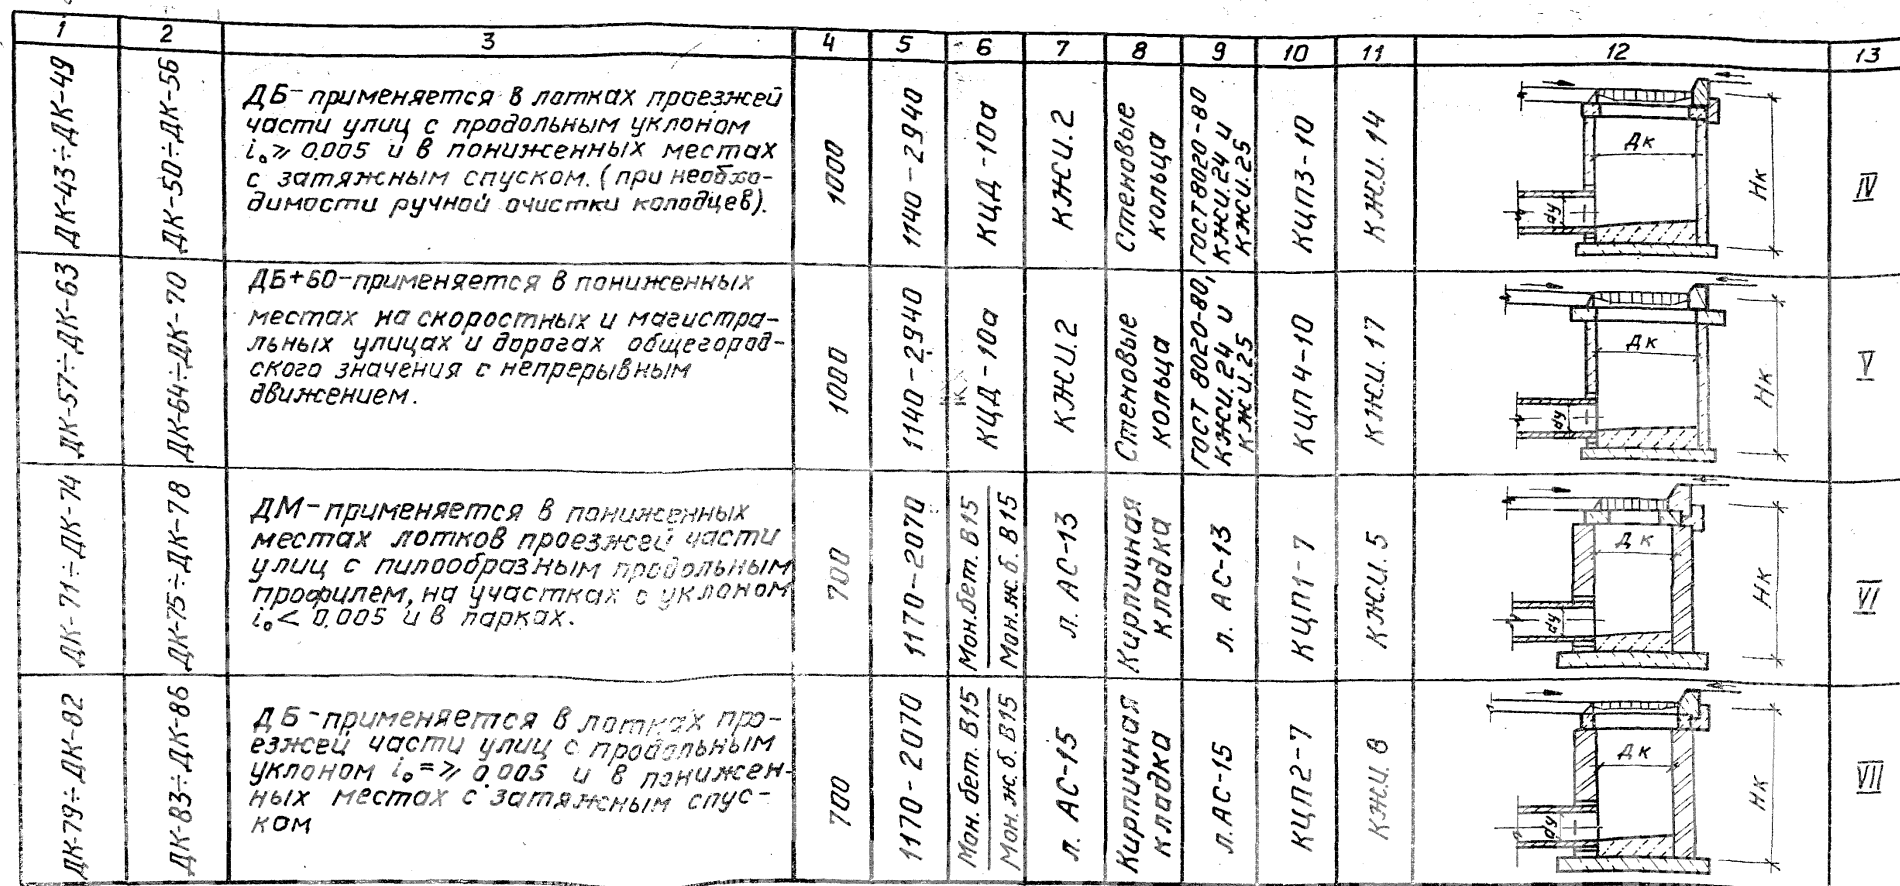 1 2 3 4 5 6 7 8 9 10 11 12 13
ДК-43÷ДК-49
ДК-50÷ДК-56
ДБ-применяется в лотках проезжей
части улиц с продольным уклоном
i₀⩾ 0.005 и в пониженных местах
с затяжным спуском. (при необхо-
димости ручной очистки колодцев).
1000
1140-2940
КЦД-10а
КЖИ.2
Стеновые
кольца
ГОСТ 8020-80
КЖИ.24 и
КЖИ.25
КЦП3-10
КЖИ.14
Дк
Нк
dy
IV
ДК-57÷ДК-63
ДК-64÷ДК-70
ДБ+БО-применяется в пониженных
местах на скоростных и магистра-
льных улицах и дорогах общегород-
ского значения с непрерывным
движением.
1000
1140-2940
КЦД-10а
КЖИ.2
Стеновые
кольца
ГОСТ 8020-80,
КЖИ.24 и
КЖИ.25
КЦП4-10
КЖИ.17
Дк
Нк
dy
V
ДК-71÷ДК-74
ДК-75÷ДК-78
ДМ-применяется в пониженных
местах лотков проезжей части
улиц с пилообразным продольным
профилем, на участках с уклоном
i₀< 0,005 и в парках.
700
1170-2070
Мон.бет. В15
Мон.ж.б. В15
л. АС-13
Кирпичная
кладка
л. АС-13
КЦП1-7
КЖИ.5
Дк
Нк
dy
VI
ДК-79÷ДК-82
ДК-83÷ДК-86
ДБ-применяется в лотках про-
езжей части улиц с продольным
уклоном i₀=⩾ 0.005 и в понижен-
ных местах с затяжным спус-
ком
700
1170-2070
Мон.бет. В15
Мон.ж.б. В15
л. АС-15
Кирпичная
кладка
л.АС-15
КЦП2-7
КЖИ.8
Дк
Нк
dy
VII